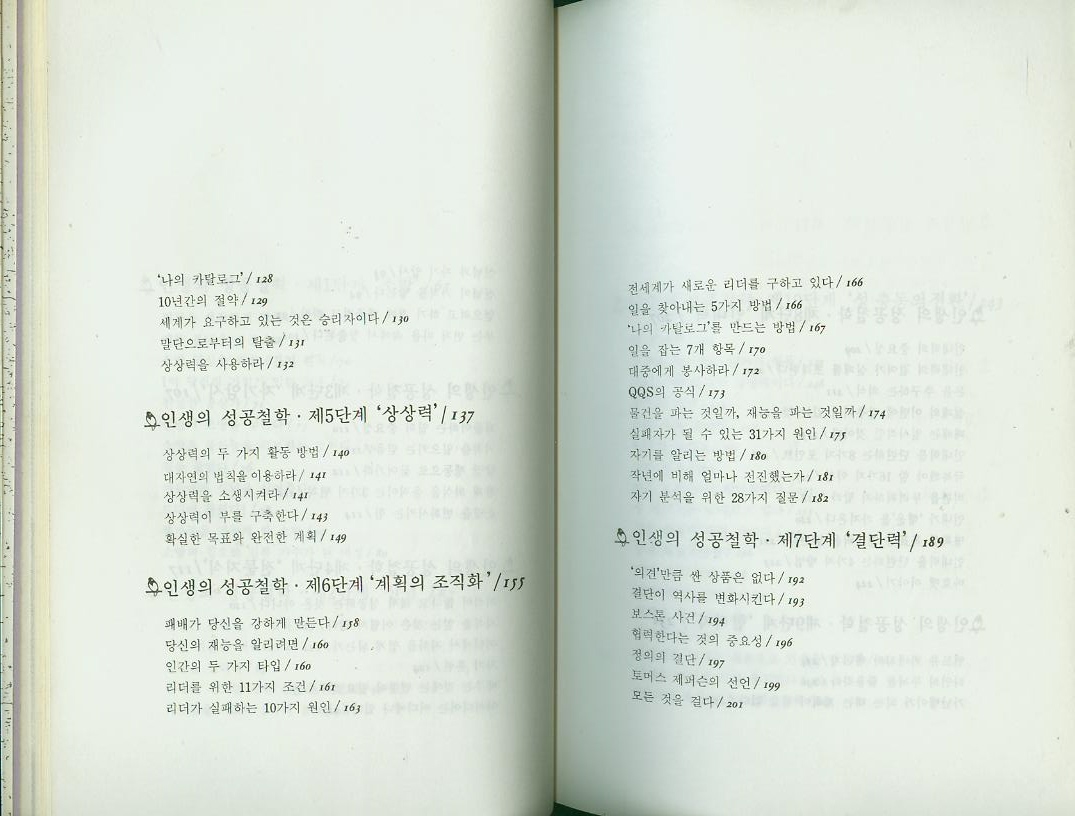 ‘나의 카탈로그’ / 128
10년간의 절약 / 129
세계가 요구하고 있는 것은 승리자이다 / 130
말단으로부터의 탈출 / 131
상상력을 사용하라 / 132
인생의 성공철학 · 제5단계 ‘상상력’ / 137
상상력의 두 가지 활동 방법 / 140
대자연의 법칙을 이용하라 / 141
상상력을 소생시켜라 / 141
상상력이 부를 구축한다 / 143
확실한 목표와 완전한 계획 / 149
인생의 성공철학 · 제6단계 ‘계획의 조직화’ / 155
패배가 당신을 강하게 만든다 / 158
당신의 재능을 알리려면 / 160
인간의 두 가지 타입 / 160
리더를 위한 11가지 조건 / 161
리더가 실패하는 10가지 원인 / 163
전세계가 새로운 리더를 구하고 있다 / 166
일을 찾아내는 5가지 방법 / 166
‘나의 카탈로그’를 만드는 방법 / 167
일을 잡는 7개 항목 / 170
대중에게 봉사하라 / 172
QQS의 공식 / 173
물건을 파는 것일까, 재능을 파는 것일까 / 174
실패자가 될 수 있는 31가지 원인 / 175
자기를 알리는 방법 / 180
작년에 비해 얼마나 전진했는가 / 181
자기 분석을 위한 28가지 질문 / 182
인생의 성공철학 · 제7단계 ‘결단력’ / 189
‘의견’만큼 싼 상품은 없다 / 192
결단이 역사를 변화시킨다 / 193
보스톤 사건 / 194
협력한다는 것의 중요성 / 196
정의의 결단 / 197
토머스 제퍼슨의 선언 / 199
모든 것을 걸다 / 201